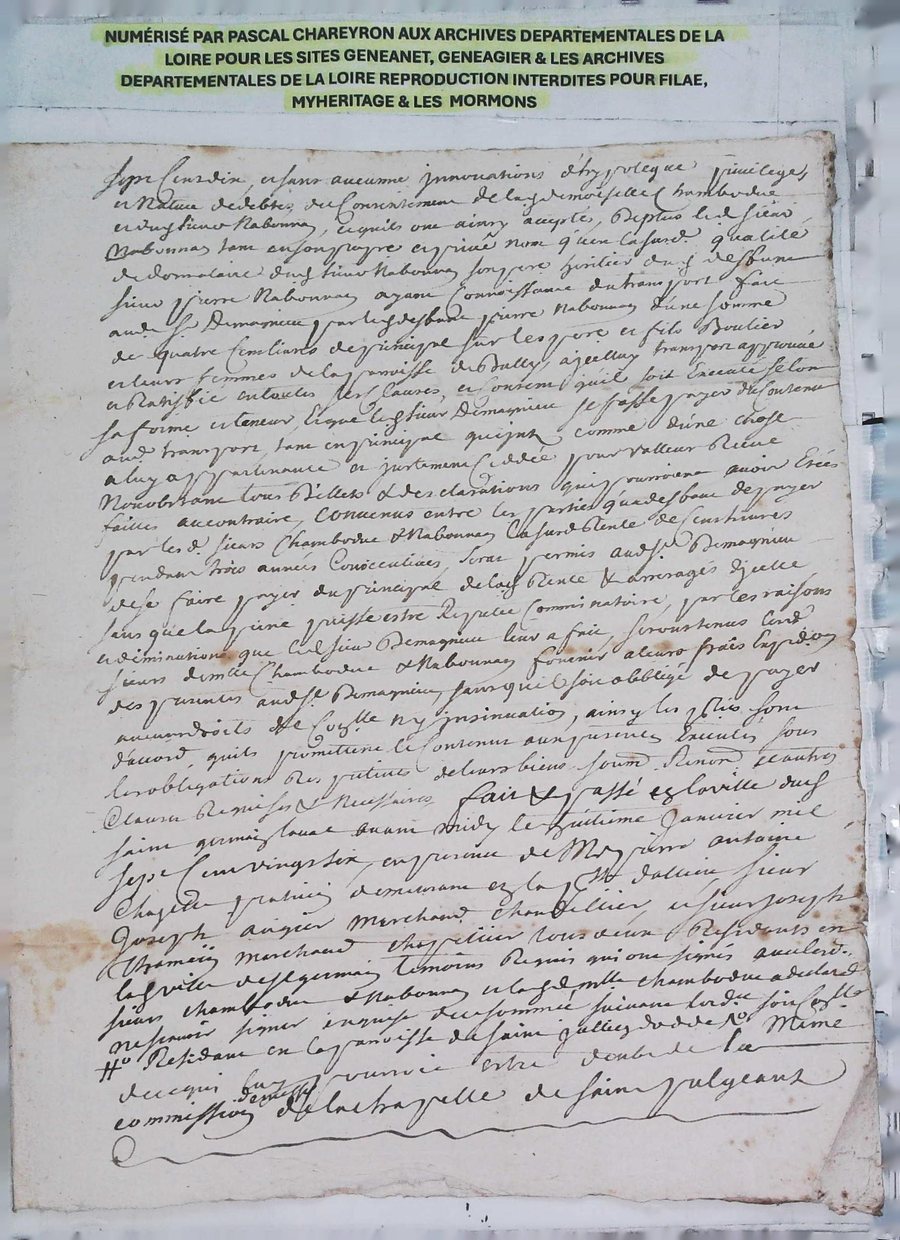 NUMÉRISÉ PAR PASCAL CHAREYRON AUX ARCHIVES DEPARTEMENTALES DE LA
LOIRE POUR LES SITES GENEANET, GENEAGIER & LES ARCHIVES
DEPARTEMENTALES DE LA LOIRE REPRODUCTION INTERDITES POUR FILAE,
MYHERITAGE & LES MORMONS
sept Cens dix, et sans aucune jnnovations d'hypoteque privileges
et Nature de debtes, du Consentement de lad demoiselle Chambodue
et dud sieur Nabonnan, ce quils ont ainsy acceptés, De plus led sieur
Nabonnan tant en son propre et privé nom qu'en lasusd qualité
de donnataire dud sieur Nabonnan son pere heritier dud deffunt
sieur pierre Nabonnan ayant Connoissance du transport fait
aud sr Demagnieu par led deffunt pierre Nabonnan d'une somme
de quatre Cens livres de principal sur les pere et fils
et leurs femmes de la parroisse de Bully, a jcelluy transport approuvé
et Ratiffié en toutes ses Clauses, et Consent qu'il soit Executé selon
sa forme et teneur, Et que led sieur Demagnieu se fasse payer du Contenu
aud transport, tant en principal qu'jnts comme d'une chose
a luy appartenante et justement Ceddée pour valleur Receue
Nonobstant tous Billets & desclarations qui pourroient avoir Estés
faittes au contraire, Convenus entre les parties qu'a deffaut de payer
par lesd sieurs Chambodue & Nabonnan lasusd Rente de
pendant trois années Consecutives, sera permis aud sr Demagnieu
de se faire payer du principal de lad Rente & arrerages d'jcelle
sans que la peine puisse estre Reputée Comminatoire, par les raisons
et diminutions que led sieur Demagnieu leur a fait, seront tenus lesd
sieurs Chambodue & Nabonnan fournir a leurs frais Expedion
des presentes aud sr Demagnieu, sans qu'il soit obbligé de payer
aucuns droits de Con̄lle ny jnsinuation, ainsy les pties sont
d'accord, qu'ils promettent le Contenu aux presentes Executés, sous
les obligations Respectives de leurs biens soum̄. Renond et autres
Clauses Requises & Necessaires, fait & passé en la ville dud
saint germain laval avant midy le huitieme Janvier mil
sept Cens vingt six, en presence de Me pierre antoine
Chazette praticien demeurant en la d'allieu sieur
Joseph augier Marchand chandellier, et sieur Joseph
Marchand chapellier tous deux Residents en
lad ville de st germain témoins Requis qui ont signés avec lesd
sieurs chambodue & Nabonnan et lad dlle chambodue a declaré
ne scavoir signer enquise et sommée suivant lord
Residant en la parroisse de saint Soit
pourroit estre de la Meme
commission
de la chapelle de saint pulgeant